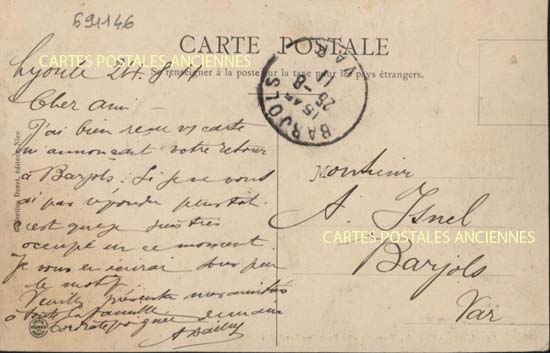 691146
CARTE POSTALE
CARTES POSTALES ANCIENNES
Se renseigner à la poste sur la taxe pour les pays étrangers.
BARJOLS
15
25-8
11
VAR
Cher ami —
J'ai bien reçu vs carte
m'annonçant votre retour
à Barjols. Si je ne vous
ai pas répondu plus tôt
c'est que je suis très
occupé en ce moment.
Je vous en écrirai sous peu
le motif
Veuillez présenter mes amitiés
à toute la famille
Cordiale poignée de main
Monsieur
A. Isnel
CARTES POSTALES ANCIENNES
Barjols
Var
Collection Duret, éditeur, Nice